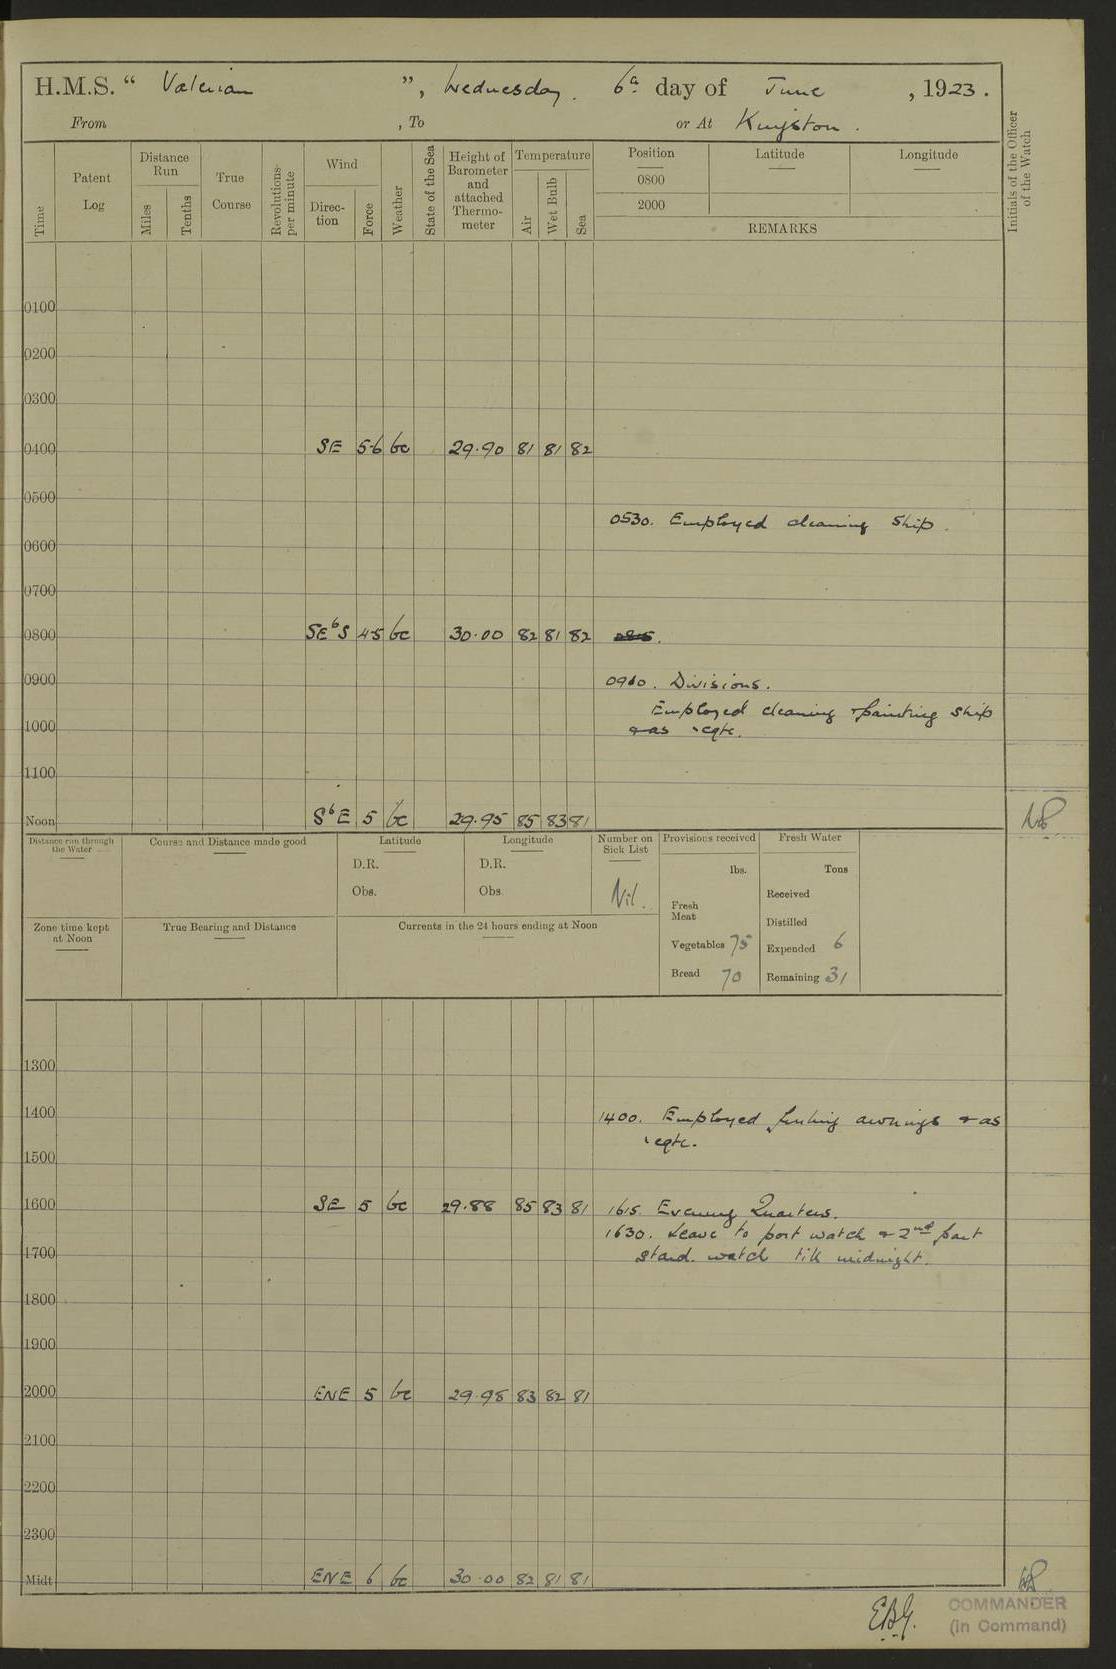 H.M.S. “ Valerian ”, Wednesday. 6th day of June , 1923.
From , To or At Kingston.
Time
Patent Log
Distance Run
Miles
Tenths
True Course
Revolutions per minute
Wind
Direction
Force
Weather
State of the Sea
Height of Barometer and attached Thermometer
Temperature
Air
Wet Bulb
Sea
Position
0800
2000
Latitude
Longitude
REMARKS
Initials of the Officer of the Watch
0100
0200
0300
0400 SE 5-6 bc 29.90 81 81 82
0500
0530. Employed cleaning ship.
0600
0700
0800 SE b S 4-5 bc 30.00 82 81 82
0900 0910. Divisions.
Employed cleaning & painting ship
1000 & as reqte.
1100
Noon S b E 5 bc 29.95 85 83 81
Distance run through the Water
Course and Distance made good
Latitude
D.R.
Obs.
Longitude
D.R.
Obs
Number on Sick List
Nil.
Provisions received
lbs.
Fresh Meat
Vegetables 75
Bread 70
Fresh Water
Tons
Received
Distilled
Expended 6
Remaining 31
Zone time kept at Noon
True Bearing and Distance
Currents in the 24 hours ending at Noon
1300
1400 1400. Employed furling awnings & as
reqte.
1500
1600 SE 5 bc 29.88 85 83 81 1615. Evening Quarters.
1630. Leave to port watch & 2nd part
1700 starbd. watch till midnight.
1800
1900
2000 ENE 5 bc 29.98 83 82 81
2100
2200
2300
Midt ENE 6 bc 30.00 82 81 81
COMMANDER
(in Command)